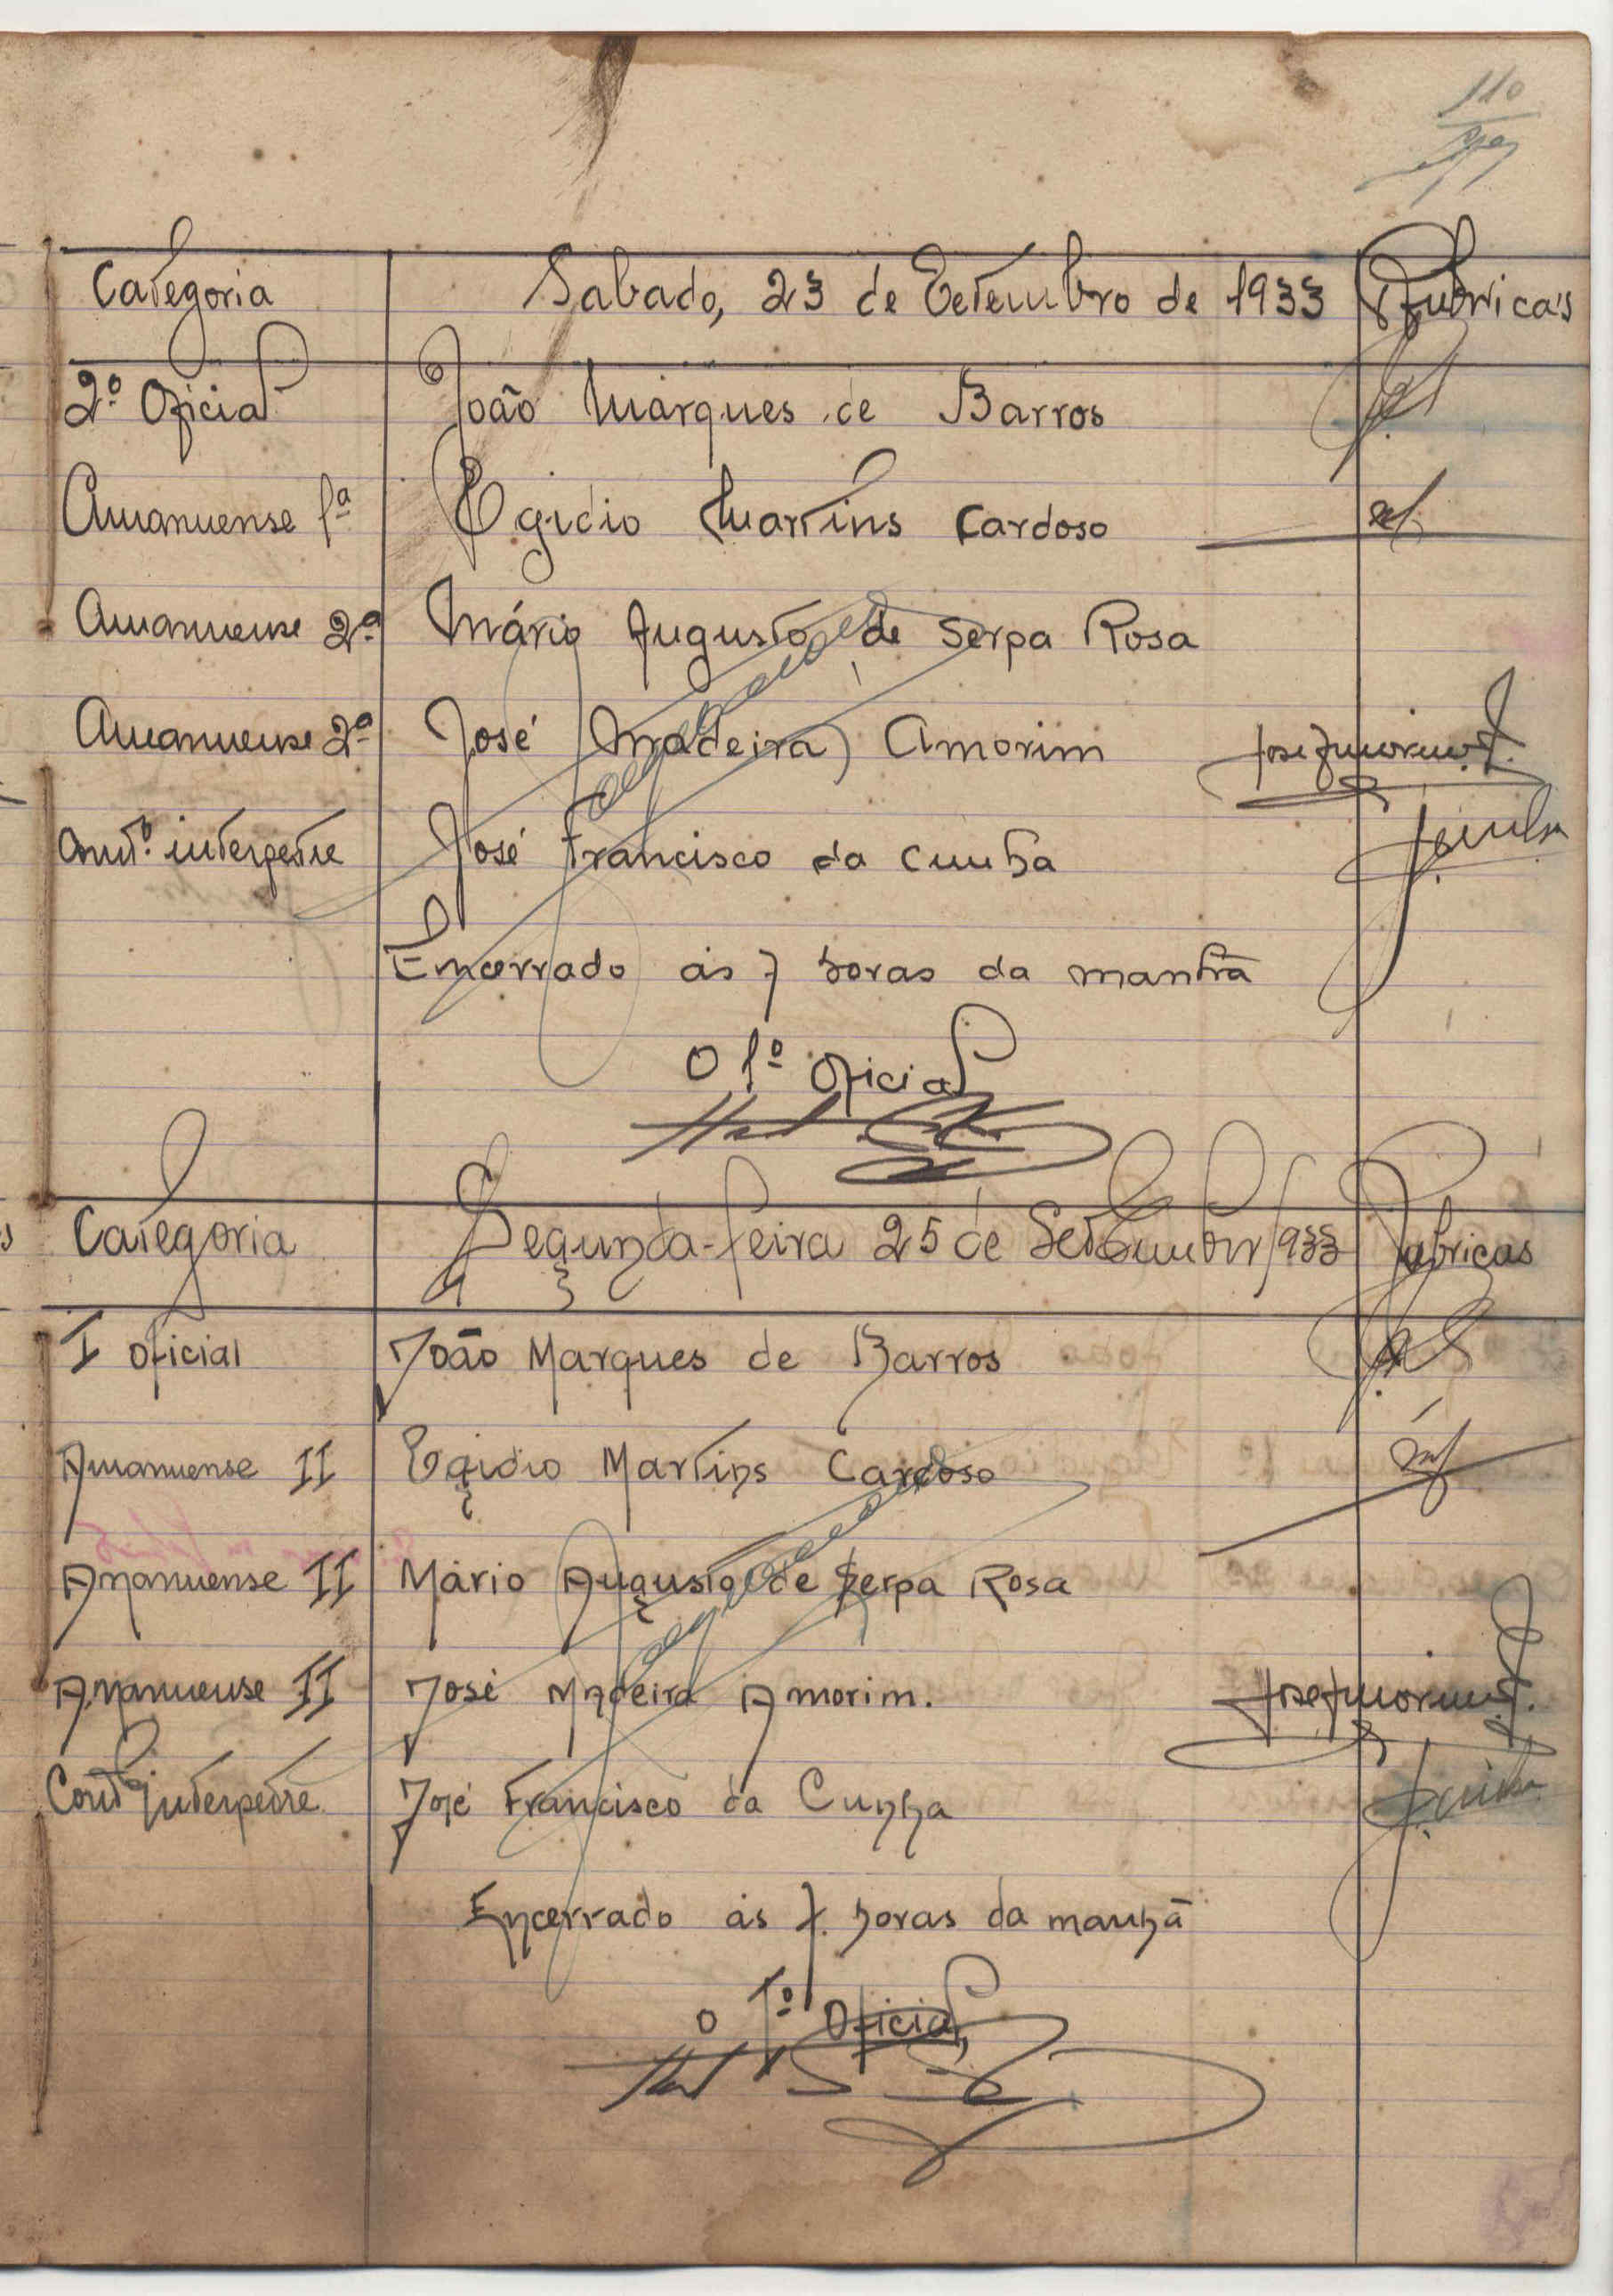 110
Categoria Sabado, 23 de Setembro de 1933 Rubricas
2º Oficial João Marques de Barros
Amanuense 1ª Egidio Martins Cardoso
Amanuense 2ª Mário Augusto de Serpa Rosa
Amanuense 2ª José Madeira Amorim José Amorim
Contº. interpetre José Francisco da Cunha J. Cunha
Encerrado ás 7 horas da manhã
O 1º Oficial
Categoria Segunda-feira 25 de Setembro 1933 Rubricas
I Oficial João Marques de Barros
Amanuense II Egidio Martins Cardoso
Amanuense II Mário Augusto de Serpa Rosa
Amanuense II José Madeira Amorim. José Amorim
Contº interpetre José Francisco da Cunha J. Cunha
Encerrado ás 7 horas da manhã
O 1º Oficial,